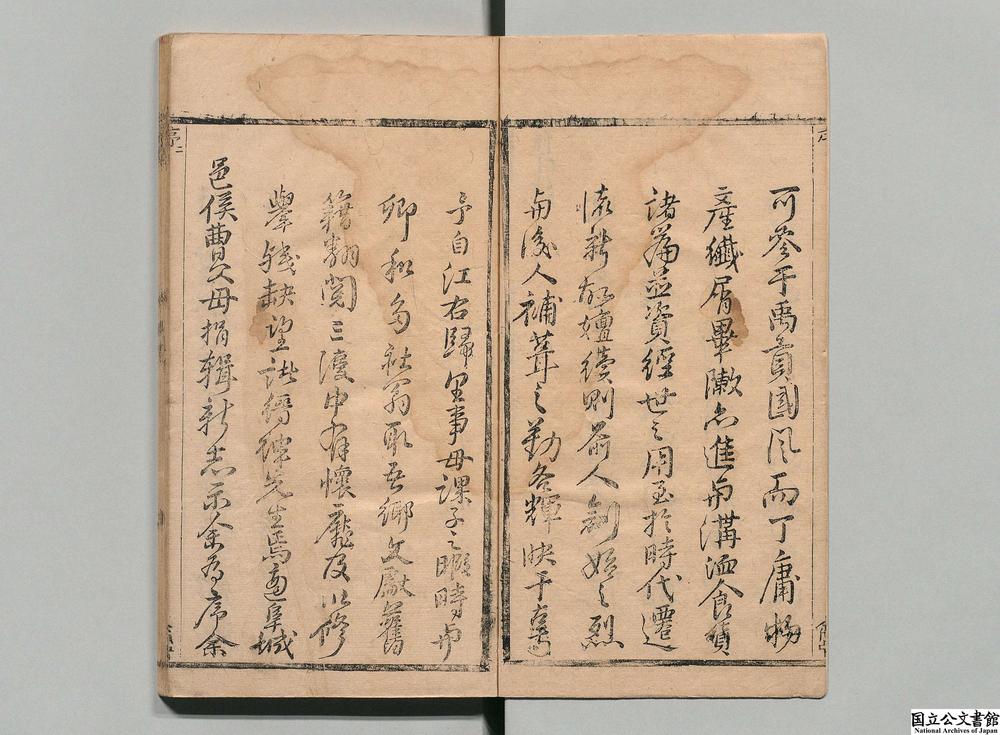 可參于禹貢國風而丁庸物
產纖屑畢陳亦進與溝洫食貨
諸篇並資經世之用至於時代遷
流新故嬗續則前人創始之烈
與後人補葺之勤各輝映千古焉
予自江右歸里事母課子之暇時與
鄉社翁取吾鄉文獻舊
籍翻閱三復中有懷龐及川修
舉殘缺望諸先生焉適阜城
邑侯曹父母捐輯新志示余為序余
序二
国立公文書館
National Archives of Japan